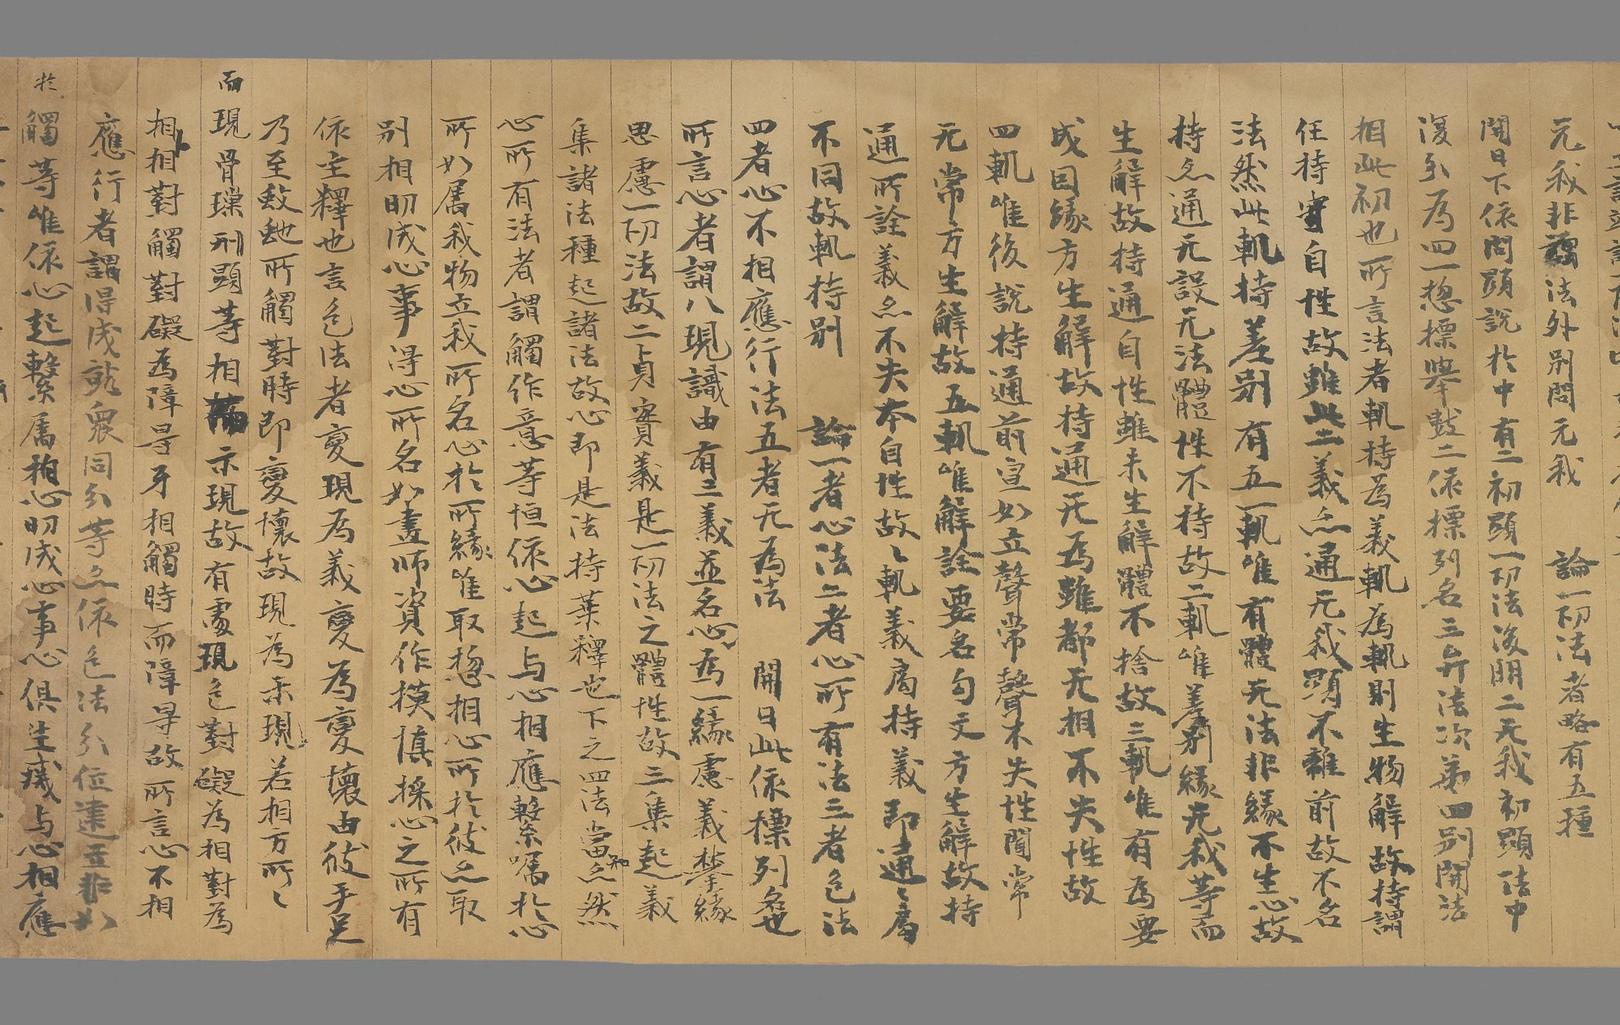 无我非離法外別問无我　論一切法者略有五種
開曰下依問顯說於中有二初顯一切法後明二无我初顯法中
復分為四一惣標舉數二依標列名三弁法次第四別開法
相此初也所言法者軌持為義軌為軌則生物解故持謂
任持守自性故雖此二義亦通无我顯不離前故不名
法然此軌持差別有五一軌唯有體无法非緣不生忘故
持亦通无設无法體性不待故二軌唯差別緣无我等而
生解故持通自性雖未生解體不捨故三軌唯有為要
成因緣方生解故持通无為雖都无相不失性故
四軌唯後說持通前宣如立聲常聲不失性聞常
无常方生解故五軌唯解詮要名句文方生解故持
通所詮義亦不失本自性故〻軌義局持義即通〻局
不同故軌持別　論一者心法二者心所有法三者色法
四者心不相應行法五者无為法　開曰此依標列名也
所言心者謂八現識由有三義並名心為一緣慮義攀緣
思慮一切法故二貞實義是一切法之體性故三集起義
集諸法種起諸法故心即是法持葉釋也下之四法當知亦然
心所有法者謂觸作意等恒依心起与心相應繫屬於心
所如屬我物立我所名心於所緣唯取惣相心所於彼亦取
別相明成心事得心所名如畫師資作摸填採心之所有
依主釋也言色法者變現為義變為變壞由彼手足
乃至蚊虵所觸對時即變懷故現為示現若相方所〻
而現骨璅形顯等相示現故有處現色對礙為相對為
相相對觸對礙為障㝵牙相觸時而障㝵故所言心不相
應行者謂得成就衆同分等亦依色法分位建立非如
觸等唯依心起繫屬相心明成心事心俱生滅与心相應
於